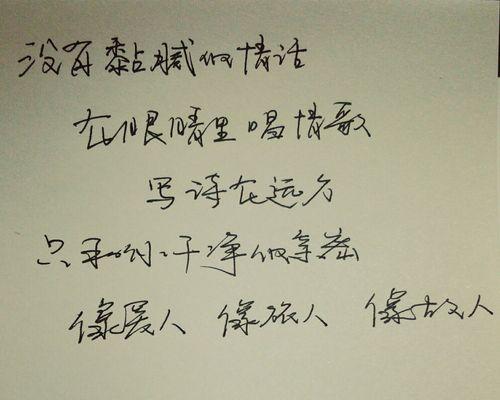 没有黏腻的情话
在眼睛里唱情歌
写诗在远方
只干净的亲密
像爱人 像旅人 像故人